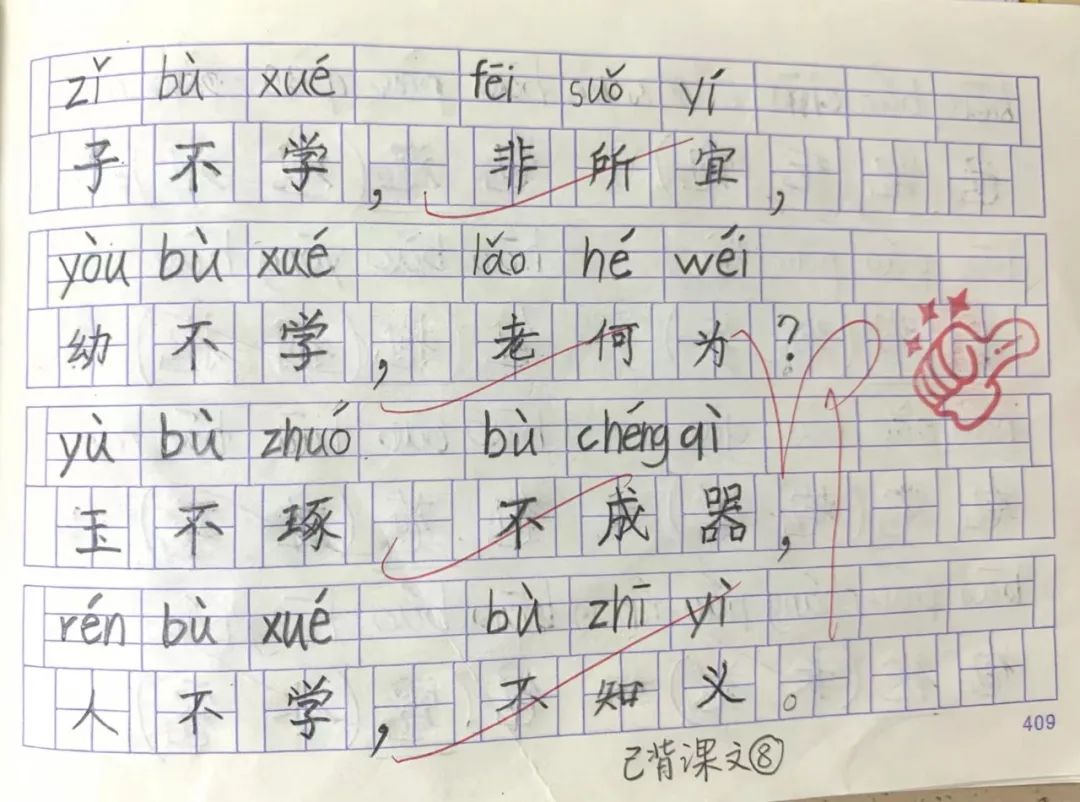 zǐ bù xué fēi suǒ yí
子不学，非所宜，
yòu bù xué lǎo hé wéi
幼不学，老何为？
yù bù zhuó bù chéng qì
玉不琢，不成器，
rén bù xué bù zhī yì
人不学，不知义。
409
已背课文⑧